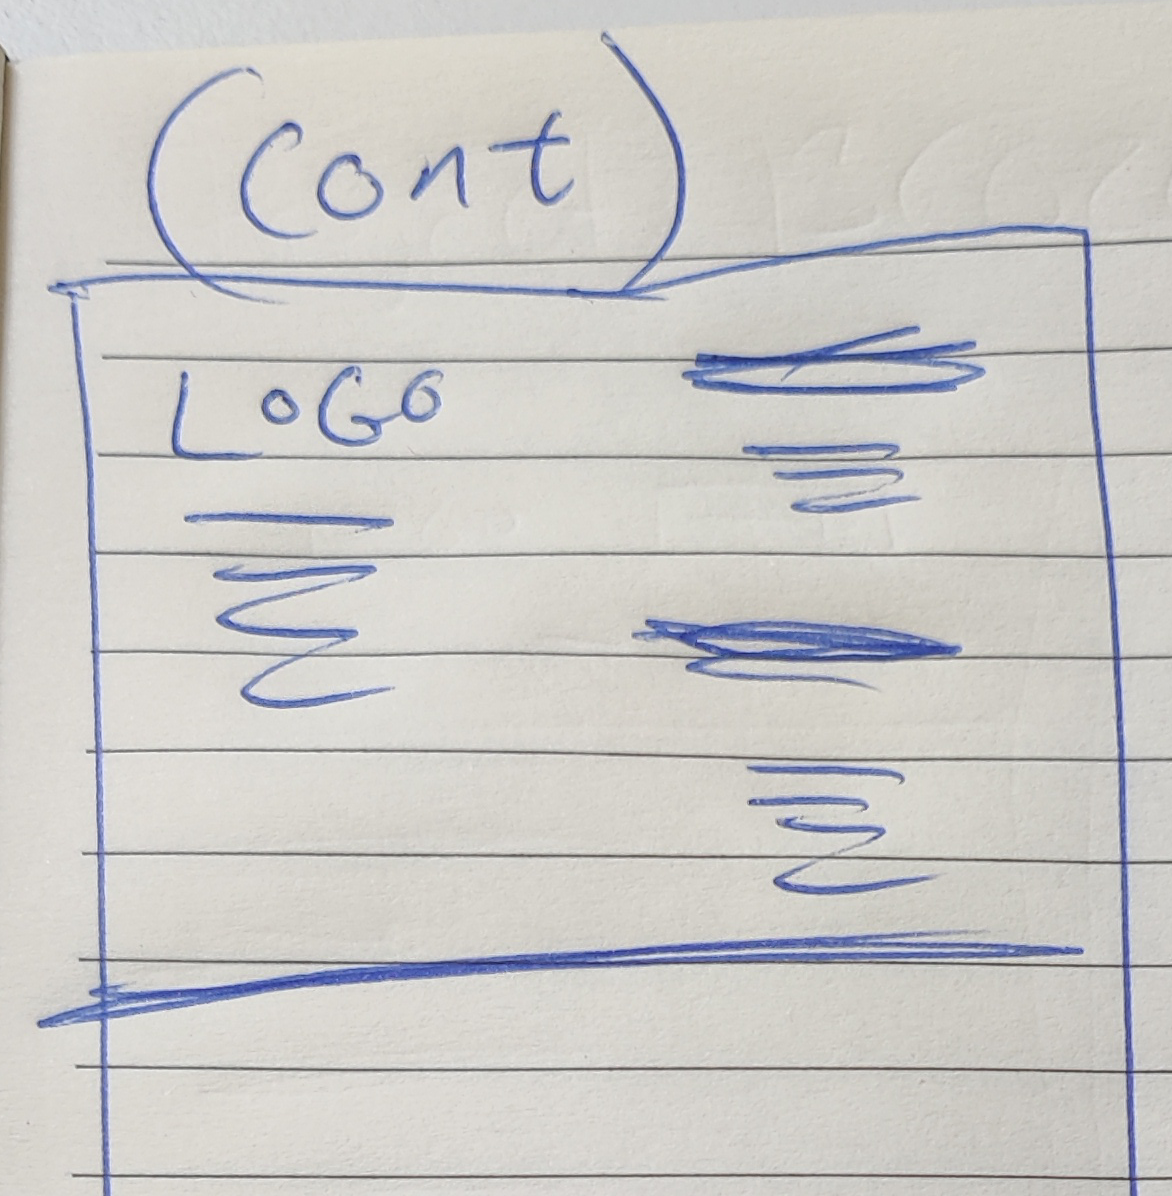 (Cont)
LOGO